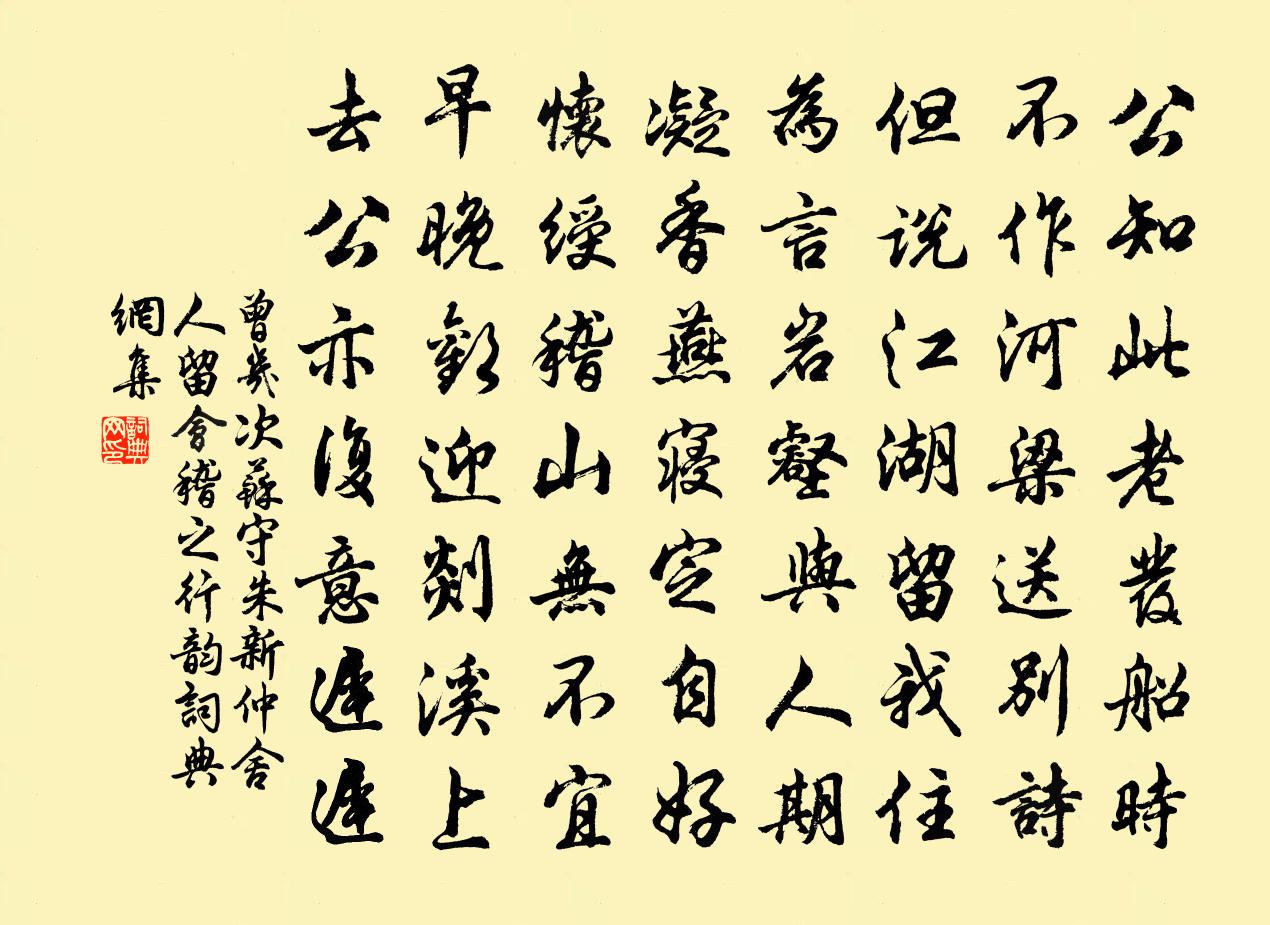 公知此老發船時
不作河梁送別詩
但説江湖留我住
為言岩壑與人期
凝香燕寝定自好
懷綬稽山無不宜
早晚歡迎剡溪上
去公亦復意遲遲
曾幾次蘇守朱新仲舍
人留會稽之行韵詞典
網集
詞典網印